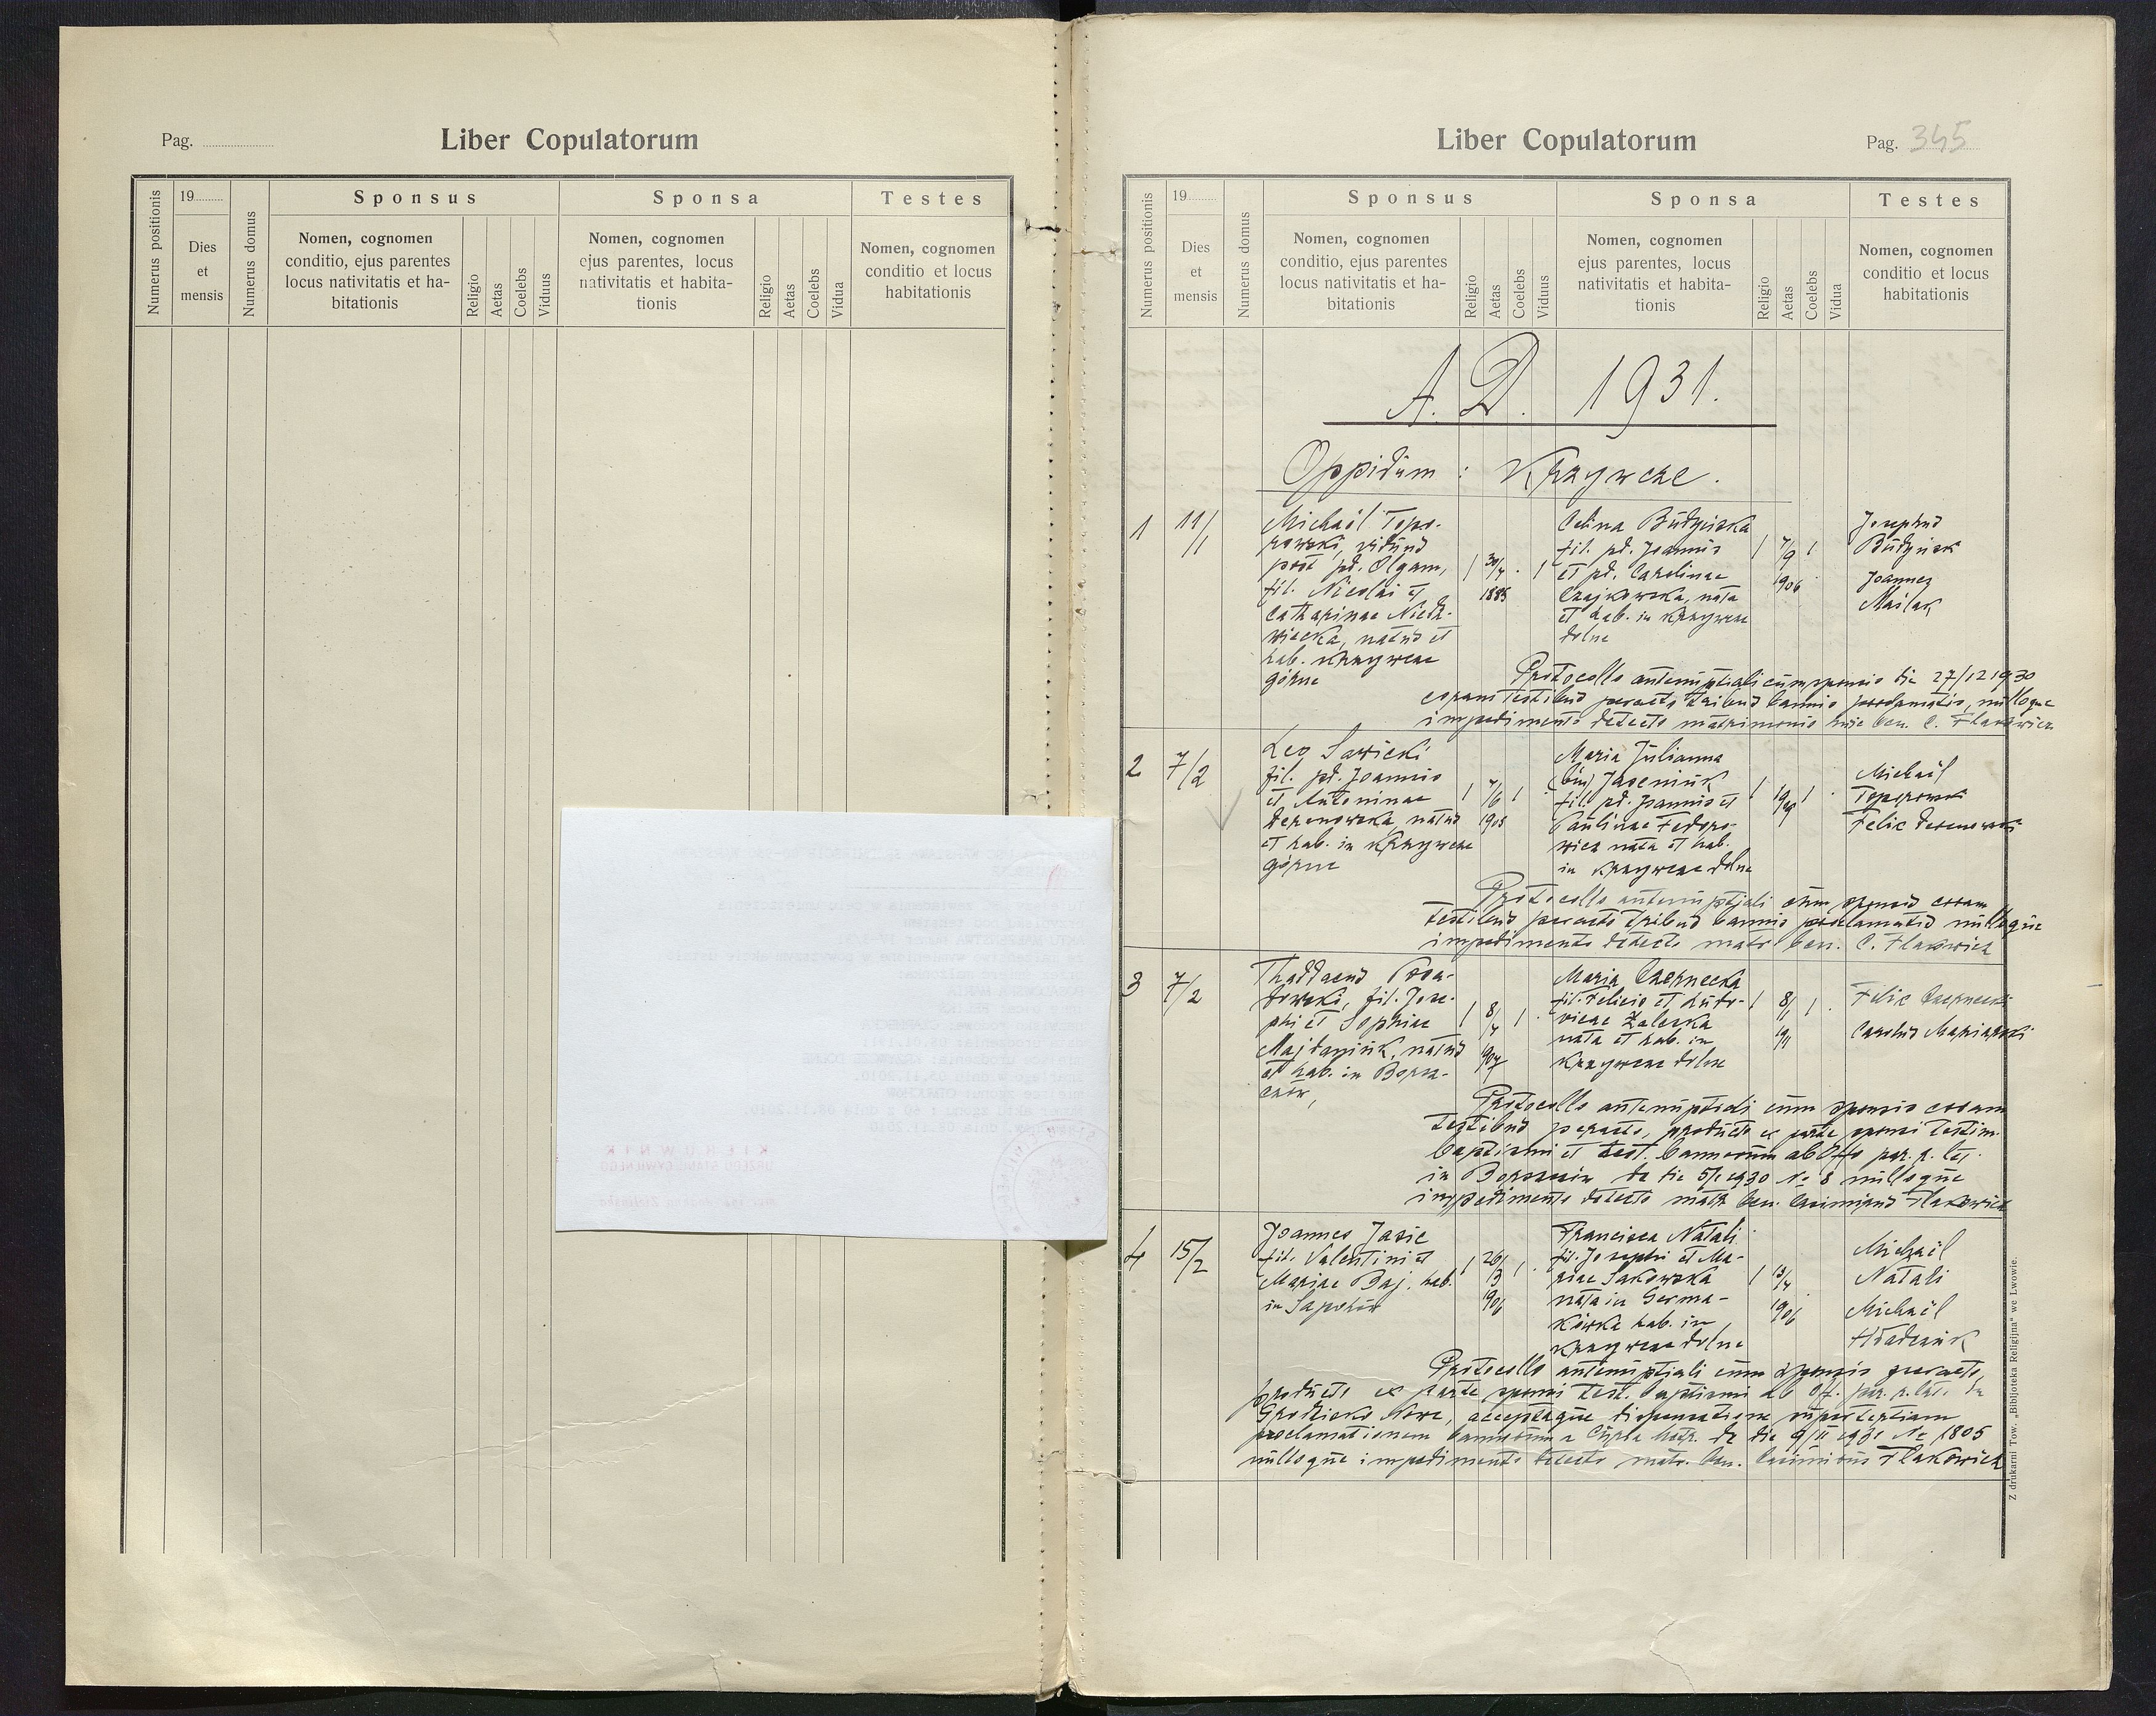 Pag.
Liber Copulatorum
Numerus positionis
19
Dies
et
mensis
Numerus domus
Sponsus
Nomen, cognomen
conditio, ejus parentes
locus nativitatis et ha-
bitationis
Religio
Aetas
Coelebs
Viduus
Sponsa
Nomen, cognomen
ejus parentes, locus
nativitatis et habita-
tionis
Religio
Aetas
Coelebs
Vidua
Testes
Nomen, cognomen
conditio et locus
habitationis
Liber Copulatorum
Pag. 345
Numerus positionis
19
Dies
et
mensis
Numerus domus
Sponsus
Nomen, cognomen
conditio, ejus parentes
locus nativitatis et ha-
bitationis
Religio
Aetas
Coelebs
Viduus
Sponsa
Nomen, cognomen
ejus parentes, locus
nativitatis et habita-
tionis
Religio
Aetas
Coelebs
Vidua
Testes
Nomen, cognomen
conditio et locus
habitationis
A. D. 1931.
Oppidum : Krzywcze.
1
11/1
Michaël Topo-
rowski, viduus
post pd. Olgam,
fil. Nicolai et
Catharinae Niedź-
wiecka, natus et
hab. Krzywcze
górne
30/4
1885
Celina Budzińska
fil. pd. Joannis
et pd. Carolinae
Czajkowska, nata
et hab. in Krzywcze
dolne
7/9
1906
Josephus
Budziński
Joannes
Maślak
Protocollo antenuptiali cum sponsis die 27/12 1930
coram testibus peracto tribus bannis proclamatis, nulloque
impedimento detecto matrimonio huic ben. C. Flakowicz
2
7/2
Leo Sawicki
fil. pd. Joannis
et Antoninae
Derenowska, natus
et hab. in Krzywcze
górne
7/6
1905
Maria Julianna
(bin) Jaseniuk
fil. pd. Joannis et
Paulinae Fedoro-
wicz nata et hab.
in Krzywcze dolne
Michaël
Toporowski
Felix Derenowski
Protocollo antenuptjali cum sponsis coram
testibus peracto tribus bannis proclamatis nulloque
impedimento detecto matr. ben. C. Flakowicz
3
7/2
Thaddaeus
fil. Jose-
phi et Sophiae
Majdaniuk, natus
et hab. in Borsz-
czów,
8/4
1907
Maria Czernecka
fil. Felicis et Ludo-
vicae Zaleska
nata et hab. in
Krzywcze dolne
8/1
1911
Felix Czernecki
Carolus Mariański
Protocollo antenuptiali cum sponsis coram
testibus peracto, producto ex parte sponsi testim.
baptismi et test. bannorum ab Offo par. r. lat.
in Borszczów de die 5/2 1930 No 8 nulloque
impedimento detecto matr. ben. Casimirus Flakowicz
4
15/2
Joannes Jasic
fil. Valentini et
Mariae Baj, hab.
in Sapohów
20/3
1906
Francisca Natali
fil. Josephi et Ma-
riae Sakowska
nata in Germa-
kówka hab. in
Krzywcze dolne
1906
Michaël
Natali
Michaël
Protocollo antenuptjali cum sponsis peracto,
producto ex parte sponsi test. baptismi ab Off. par. r. lat. in
Grodzisko Nowe, acceptaque dispensatione super tertiam
proclamationem bannorum a Curia Metr. de die 9/II 1931 No 1805
nulloque impedimento detecto matr. ben. Casimirus Flakowicz
Z drukarni Tow. „Bibljoteka Religijna" we Lwowie.